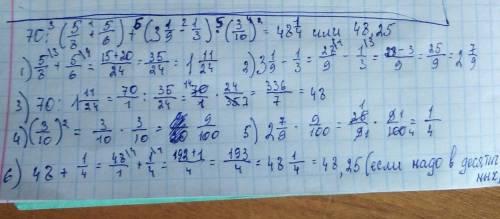 70:³(5/8 +¹ 5/6) +⁶ (3 1/9 -² 1/3) ·⁵ (3/10)⁴² = 48 1/4 или 48,25
1) 5/8 + 5/6 = 15+20/24 = 35/24 = 1 11/24 2) 3 1/9 - 1/3 = 28/9 - 1/3 = 28-3/9 = 25/9 = 2 7/9
3) 70 : 1 11/24 = 70/1 : 35/24 = 70/1 · 24/35 = 336/7 = 48
4) (3/10)² = 3/10 · 3/10 = 9/100 5) 2 7/9 · 9/100 = 25/9 · 9/100 = 1/4
6) 48 + 1/4 = 48/1 + 1/4 = 192+1/4 = 193/4 = 48 1/4 = 48,25 (если надо в десятич
ных,